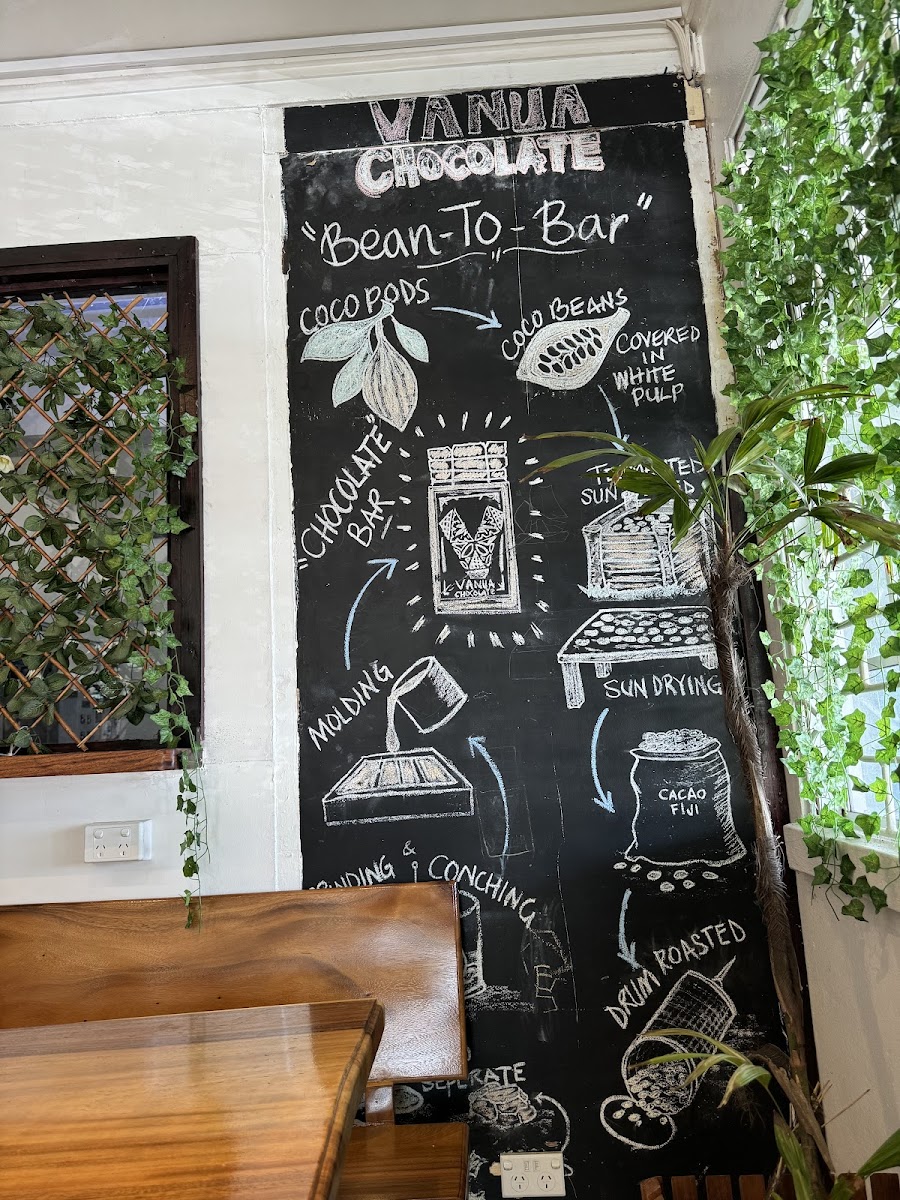 VANUA
CHOCOLATE
"Bean-To-Bar"
COCO PODS
COCO BEANS
COVERED
IN
WHITE
PULP
SUN
SUN DRYING
CACAO
FIJI
DRUM ROASTED
SEPERATE
& CONCHING
MOLDING
"CHOCOLATE"
BAR
VANUA
CHOCOLATE